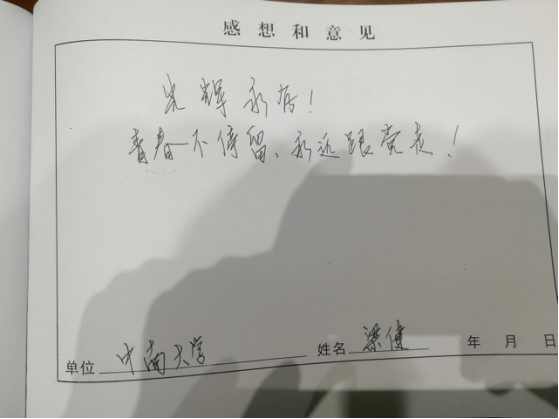 感想和意见
光辉永存！
青春不停留、永远跟党走！
单位 中南大学 姓名 梁健 年 月 日